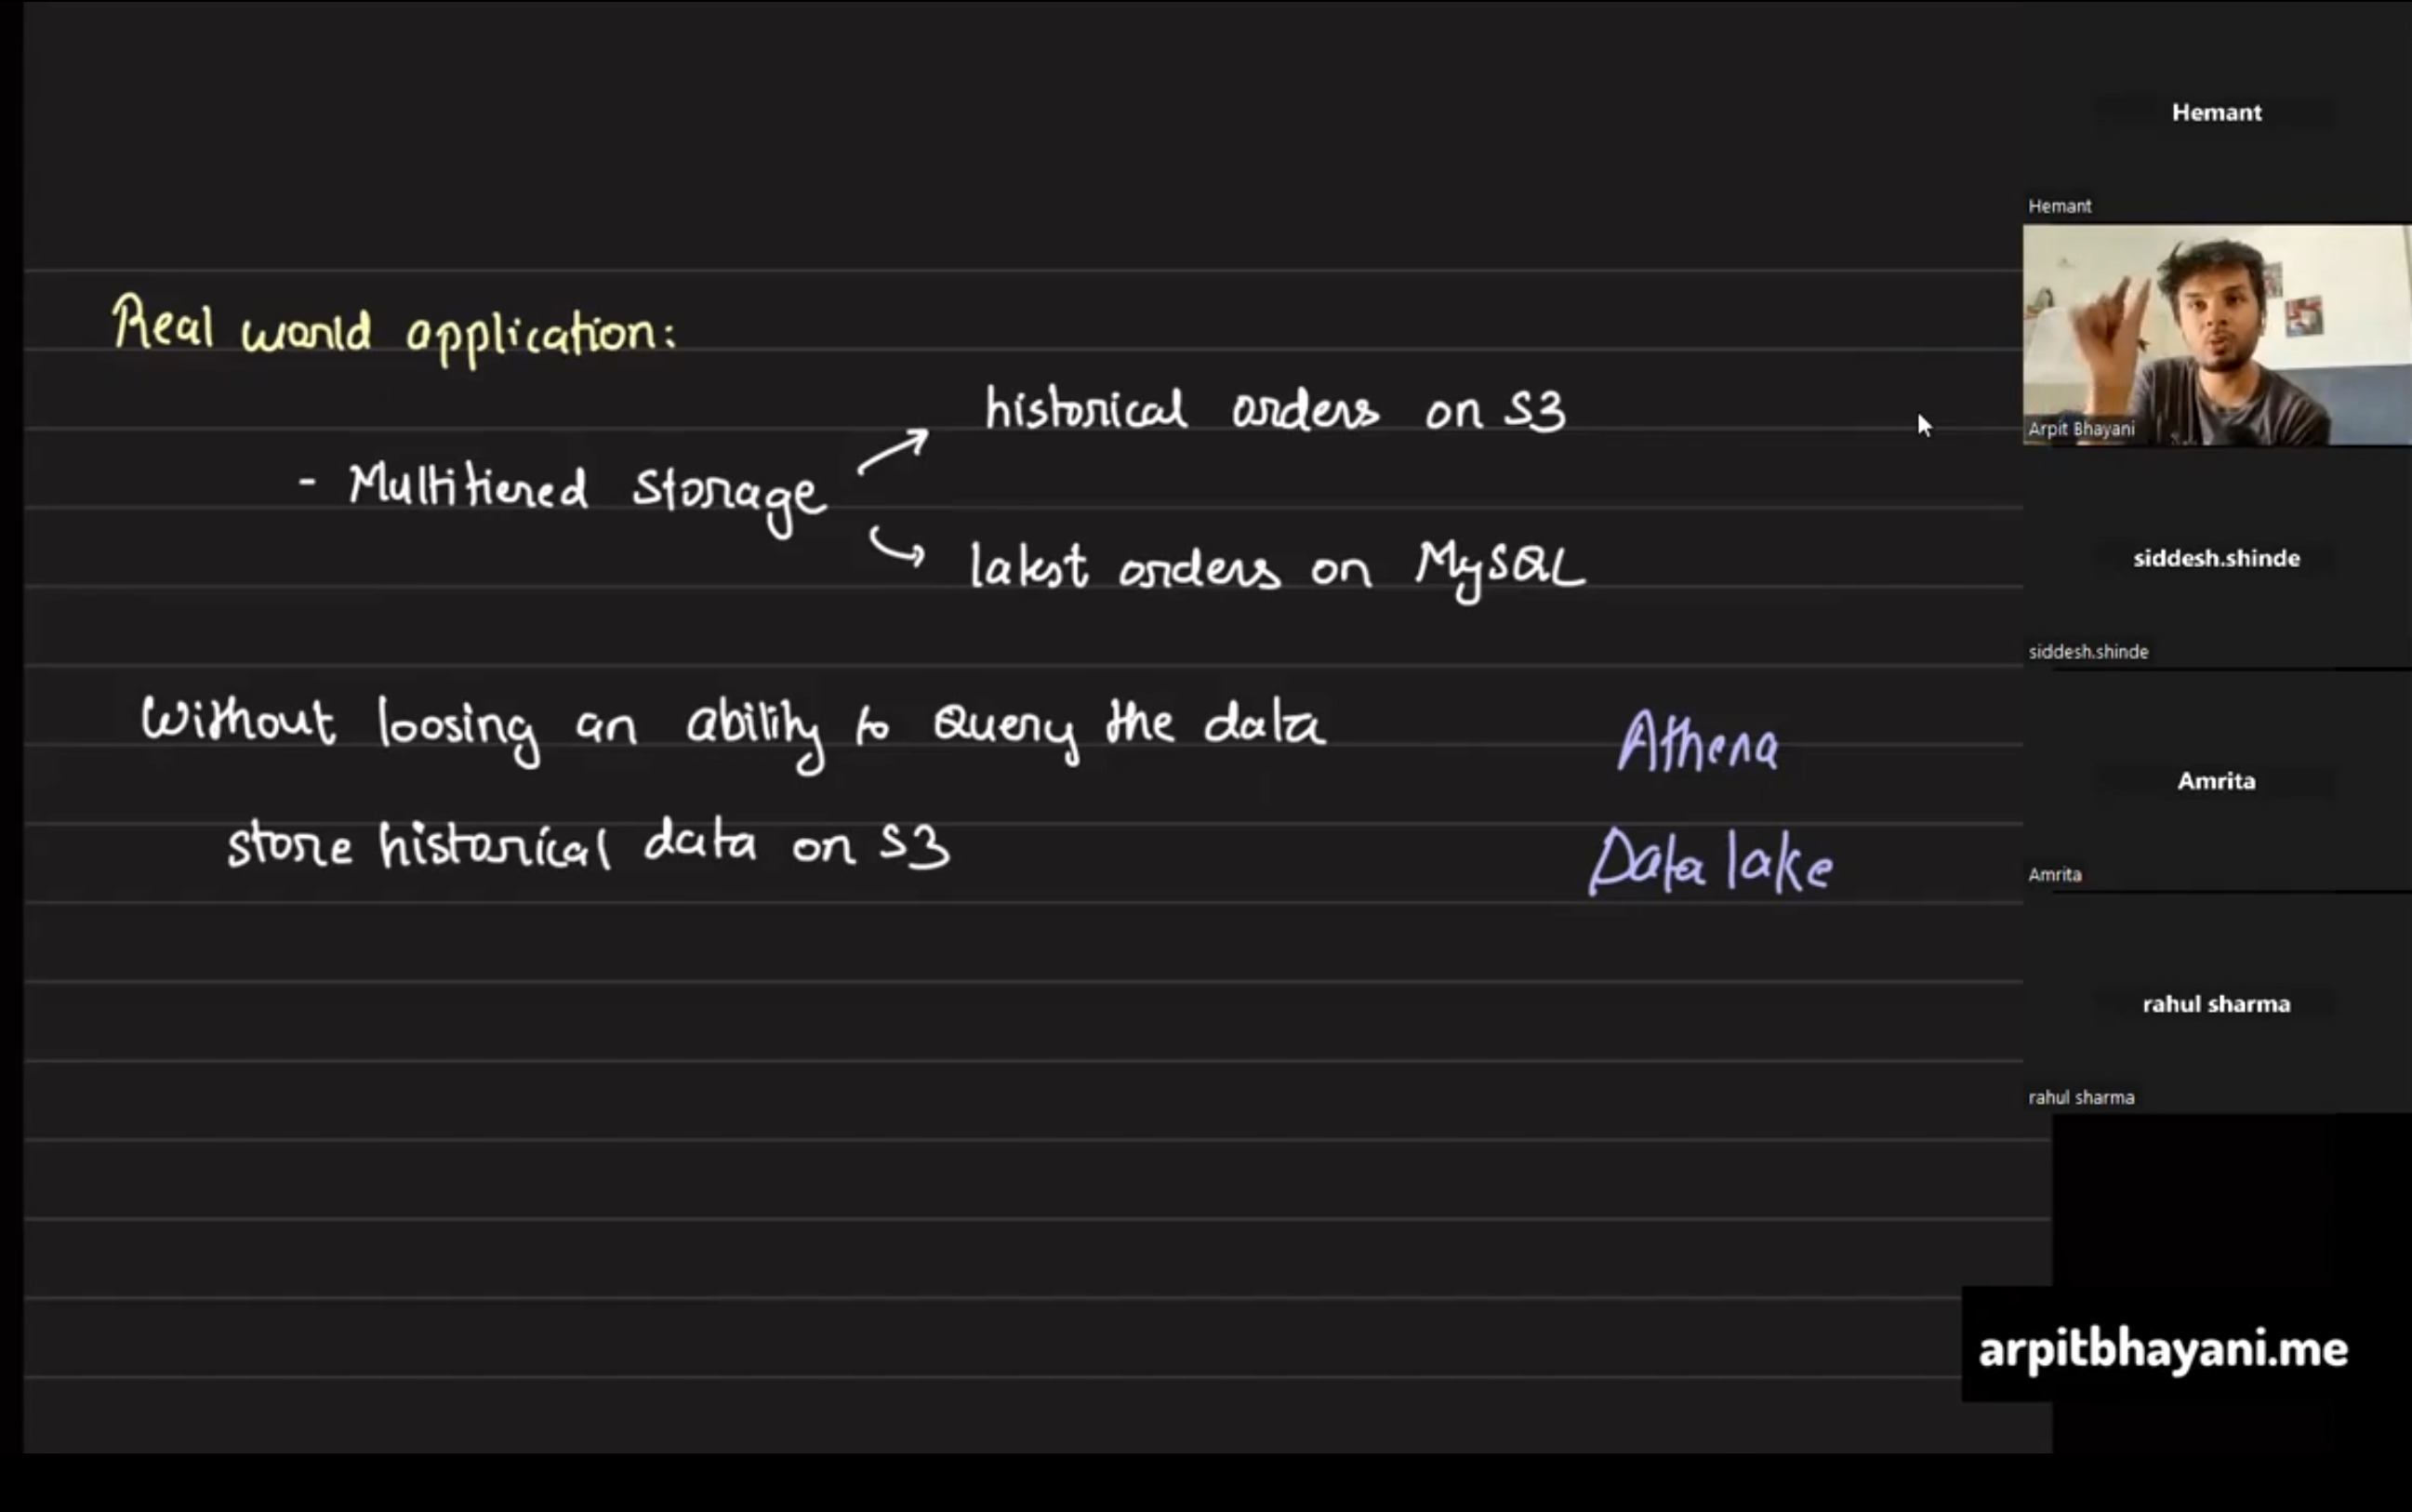 Real world application:
- Multitiered Storage
historical orders on S3
latest orders on MySQL
Without loosing an ability to Query the data
store historical data on S3
Athena
Data lake
Hemant
Hemant
Arpit Bhayani
siddesh.shinde
siddesh.shinde
Amrita
Amrita
rahul sharma
rahul sharma
arpitbhayani.me